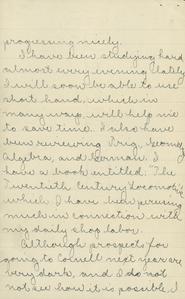 progressing nicely.
I have been studying hard
almost every evening lately
I will soon be able to use
short hand, which in
many ways will help me
to save time. I also have
been reviewing Trig, Geometry
Algebra, and German. I
have a book entitled "The
Twentieth Century Locomotive"
which I have been perusing
much in connection with
my daily shop labor.
Although prospects for
going to Cornell next year are
very dark, and I do not
not see how it is possible, I